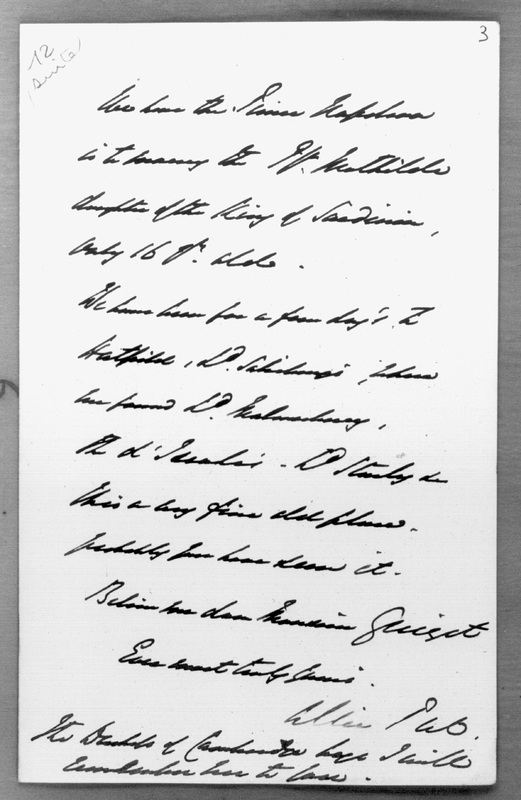 3
12
(suite)
We hear the Prince Napoleon
is to marry the Pss. Mathilde
daughter of the King of Sardinia,
only 16 Yrs. old.
We have been for a few day's to
Hatfield, Ld. Salisbury's, where
we found Ld. Malmesbury,
the d'Israeli's - Ld Stanley &c
this a very fine old place.
probably you have seen it.
Believe me dear Monsieur Guizot
Ever most truly yours.
The Duchess of Cambridge begs I will
remember her to you.